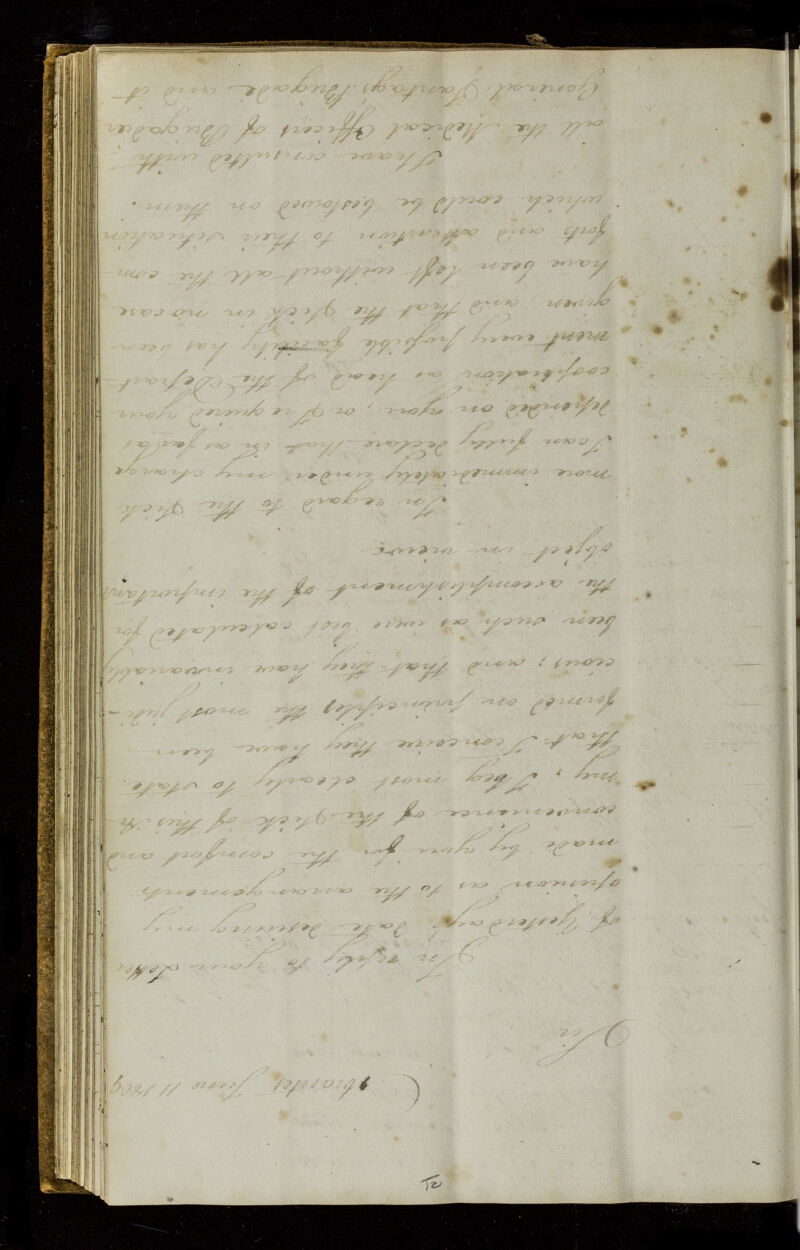 12
Abrantes June 11 1809
Sir
In reply to your Letter
of Yesterdays date desiring my
opinion as to the arrangements
made by you for the comfort and
convenience of the Sick of this Ar-
my, I beg most clearly to state
that I conceive they have been
formed on principles the most judi-
cious; and that they have invariably
been such as were best calculated for
the accomplishment of the important
object in view.
In regard to the Sick
more immediately under my charge
I can fully declare that in as far as
depended on you, or I required your
cooperation as head of the Depart-
ment every possible facility has been
given and that the Sick in no case
have been left without all the com-
forts and attention to their situation
which could be bestowed on them.
I have consulted with
all the Medical Officers of Brigadier
General Brigade and it